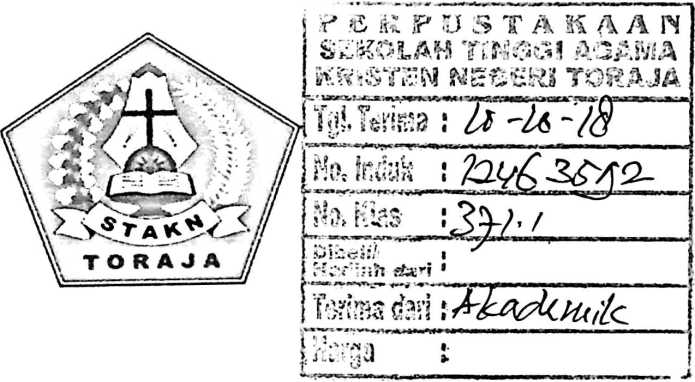 STAKN
TORAJA
PERPUSTAKAAN
SEKOLAH TINGGI AGAMA
KRISTEN NEGERI TORAJA
Tgl. Terima : 10-10-18
No. Induk :
No. Klas : 371.1
Dibeli/
Hadiah dari :
Terima dari : Akademik
Harga :